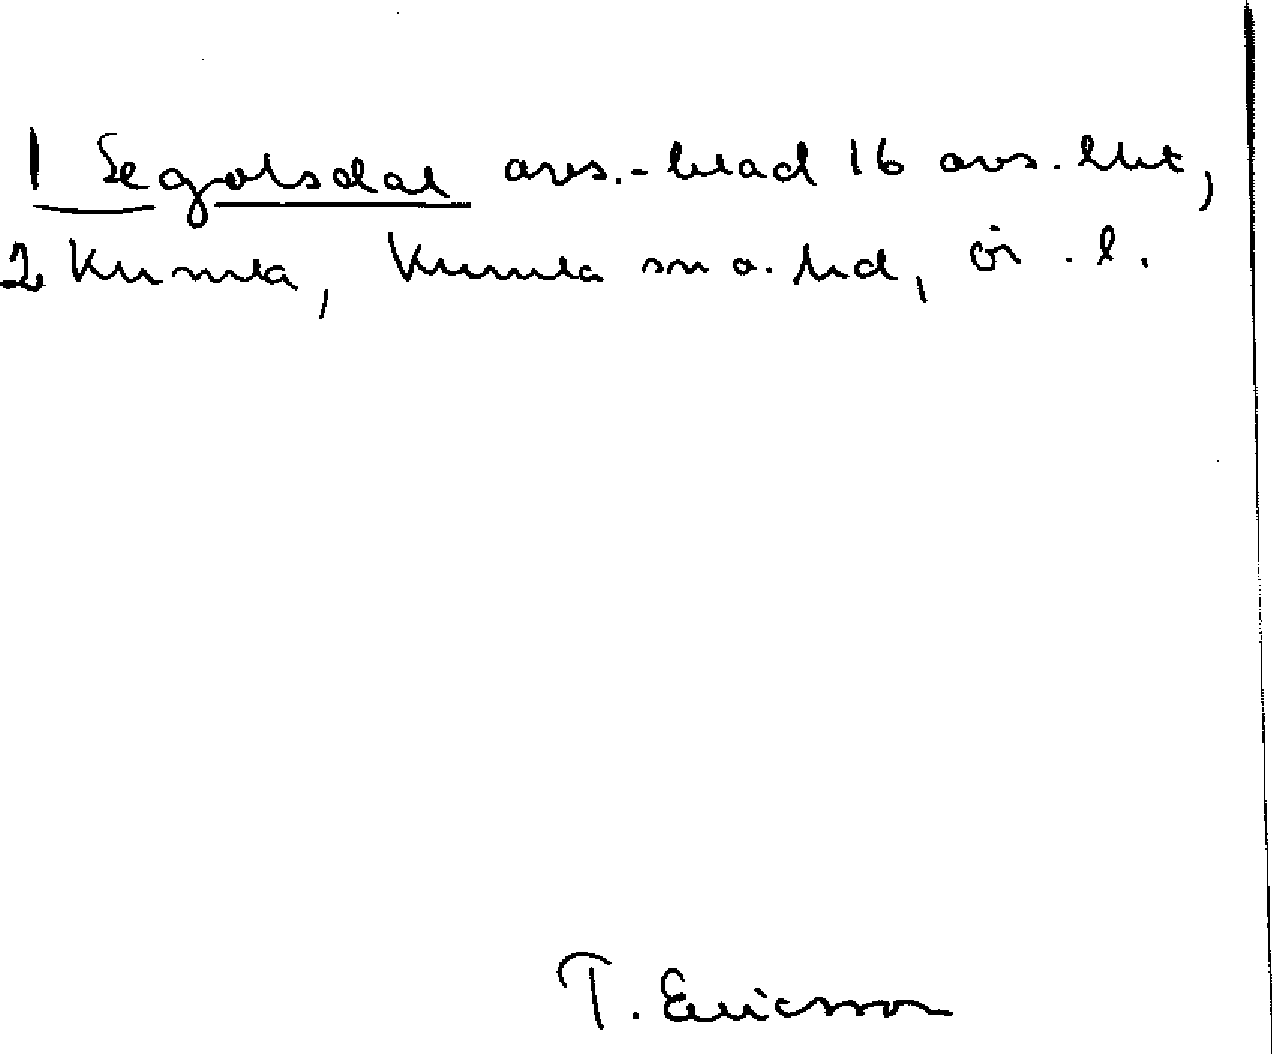 1 Segolsdal avs.-blad 16 avs. lht,
2 Kumla, Kumla sn o. hd, ör. l.
T. Ericsson